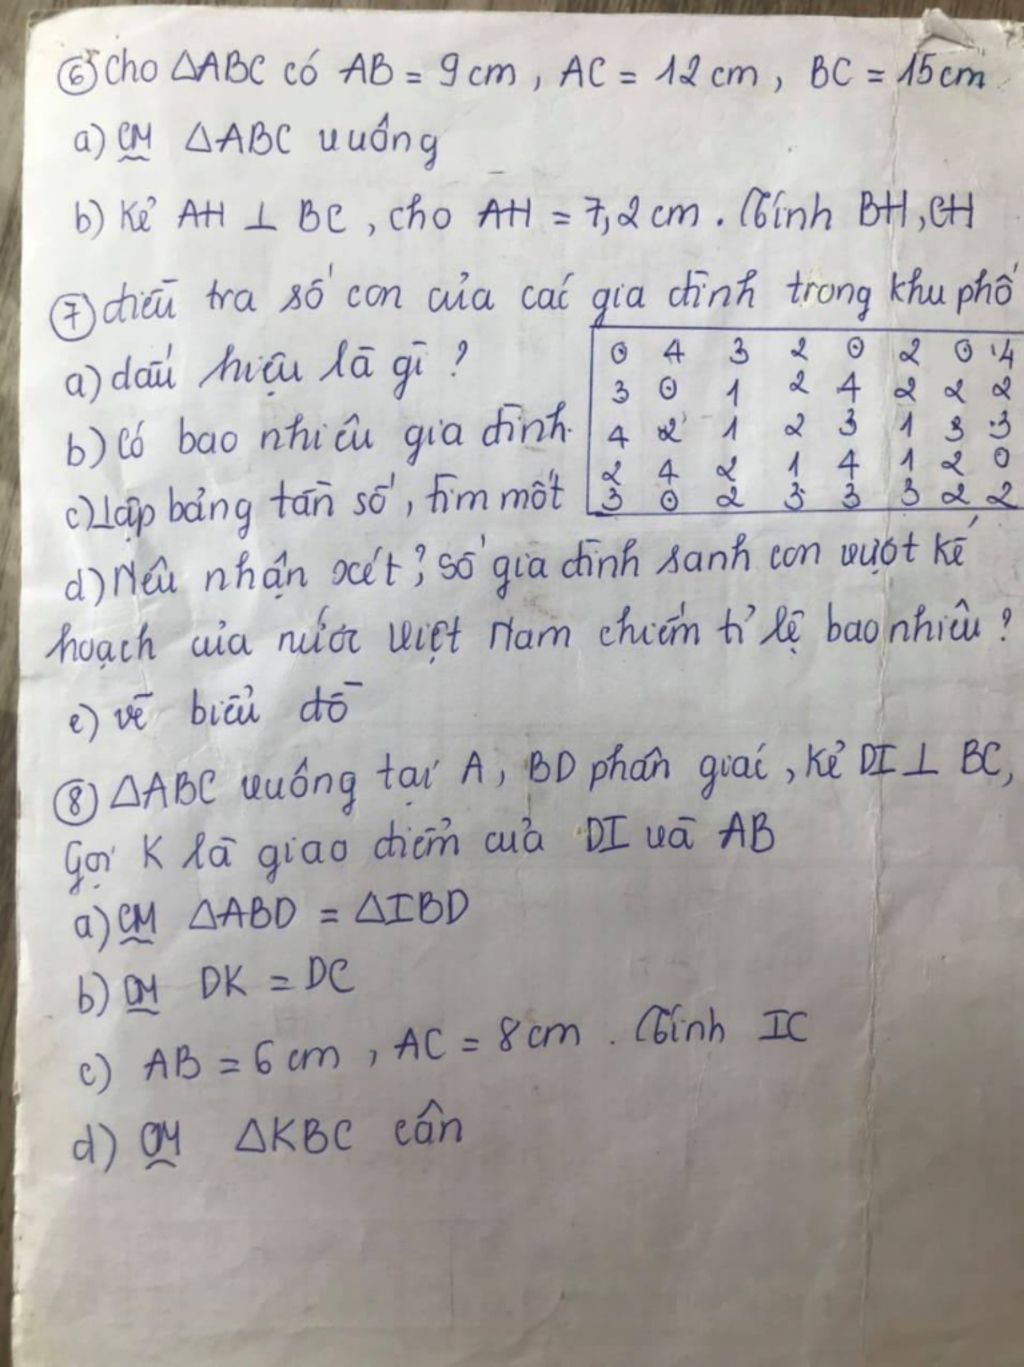 ⑥ Cho △ABC có AB = 9cm, AC = 12cm, BC = 15cm
a) CM △ABC vuông
b) Kẻ AH ⊥ BC, cho AH = 7,2cm. Tính BH, CH
⑦ điều tra số con của các gia đình trong khu phố
a) dấu hiệu là gì?
b) Có bao nhiêu gia đình
c) Lập bảng tần số, tìm mốt
0 4 3 2 0 2 0 4
3 0 1 2 4 2 2 2
4 2 1 2 3 1 3 3
2 4 2 1 4 1 2 0
3 0 2 3 3 3 2 2
d) Nêu nhận xét? Số gia đình sanh con vượt kế
hoạch của nước Việt Nam chiếm tỉ lệ bao nhiêu?
e) vẽ biểu đồ
⑧ △ABC vuông tại A, BD phân giác, kẻ DI ⊥ BC,
Gọi K là giao điểm của DI và AB
a) CM △ABD = △IBD
b) CM DK = DC
c) AB = 6cm, AC = 8cm. Tính IC
d) CM △KBC cân